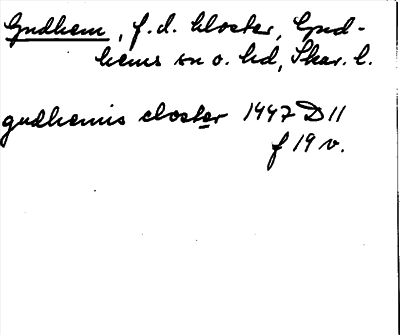 Gudhem, f.d. kloster, Gud-
hems sn o. hd, Skar. l.
gudhemis closter 1447 D 11
f 19 v.